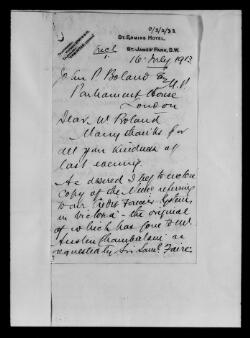 0/2/2/33
St. Ermins Hotel,
St. James' Park, S.W.
16 July 1913
John P Boland Esq
M.P.
Parliament House
London
Dear Mr Boland
Many thanks for
all your kindness of
last evening.
As desired I beg to enclose
Copy of the referring
to our Credit Foncier System
in Victoria - the original
of which has gone to Mr
Austen Chamberlain as
requested by Sir Saml. Faire